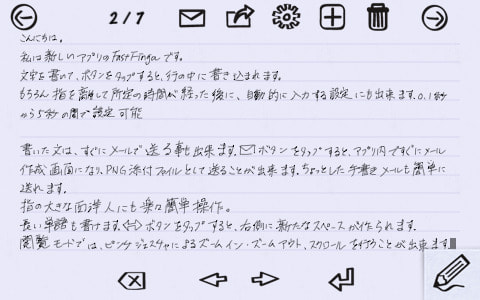 2/7
こんにちは。
私は新しいアプリのFastFingaです。
文字を書いて、ボタンをタップすると、行の中に書き込まれます。
もちろん指を離して所定の時間が経った後に、自動的に入力する設定にも出来ます。0.1秒
から5秒の間で設定可能
書いた文は、すぐにメールで送る事も出来ます。ボタンをタップすると、アプリ内ですぐにメール
作成画面になり、PNG添付ファイルとして送ることが出来ます。ちょっとした手書きメールも簡単に
送れます。
指の大きな西洋人にも楽々簡単操作。
長い単語も書けます。<-->ボタンをタップすると、右側に新たなスペースが作られます。
閲覧モードでは、ピンチジェスチャによるズームイン・ズームアウト、スクロールを行うことが出来ます